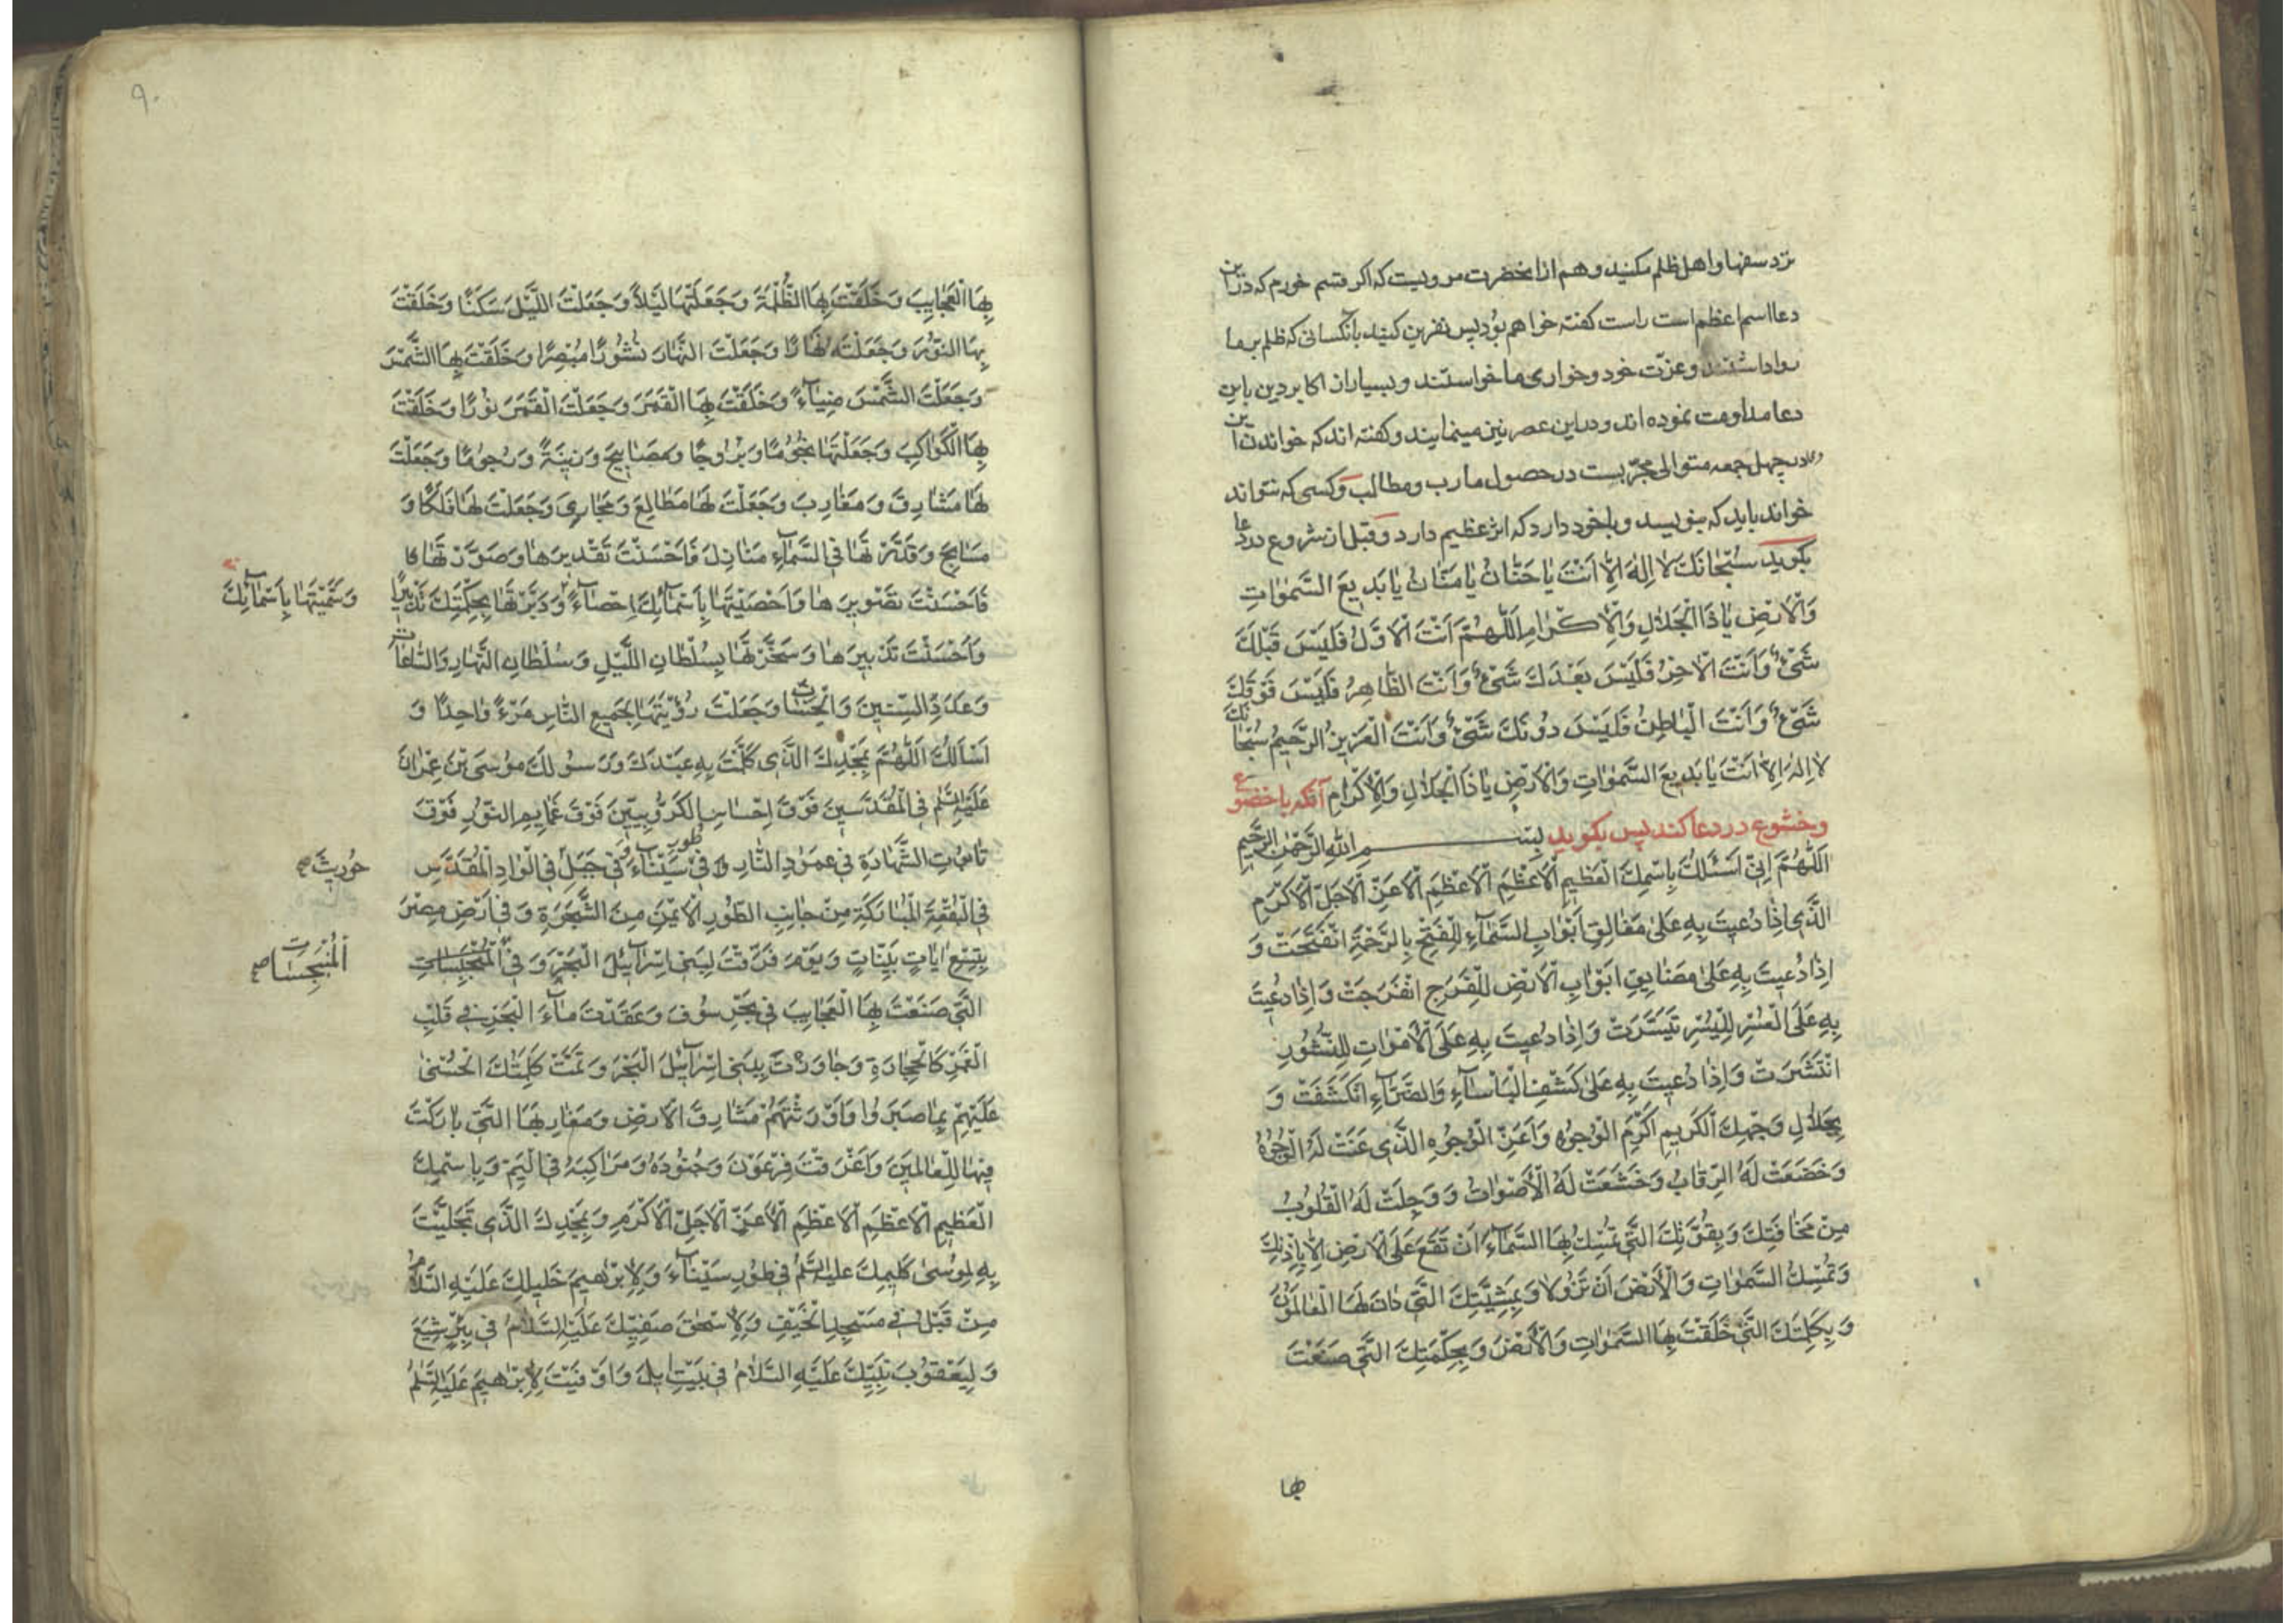 نزد سفها و اهل ظلم مکنید و هم از انحضرت مرویست که اکر قسم خورم که در این
دعا اسم اعظم است راست کفته خواهم بود پس نفرین کنید بانکسانی که ظلم بر ما
روا داشتند و عزّت خود و خواری ما خواستند و بسیار از اکابر دین باین
دعا مداومت نموده اند و در این عصر نیز مینمایند و کفته اند که خواندن این
دعا در چهل جمعه متوالی مجرّبست در حصول مارب و مطالب و کسی که نتواند
خواند باید که بنویسد و با خود دارد که اثر عظیم دارد و قبل از شروع در دعا
بکوید سُبْحَانَكَ لَا اِلٰهَ اِلَّا اَنْتَ یَا حَنَّانُ یَا مَنَّانُ یَا بَدِیعَ السَّمٰوَاتِ
وَالْاَرْضِ یَا ذَا الْجَلَالِ وَالْاِکْرَامِ اَللّٰهُمَّ اَنْتَ الْاَوَّلُ فَلَیْسَ قَبْلَكَ
شَیْءٌ وَاَنْتَ الْاٰخِرُ فَلَیْسَ بَعْدَكَ شَیْءٌ وَاَنْتَ الظَّاهِرُ فَلَیْسَ فَوْقَكَ
شَیْءٌ وَاَنْتَ الْبَاطِنُ فَلَیْسَ دُونَكَ شَیْءٌ وَاَنْتَ الْعَزِیزُ الرَّحِیمُ سُبْحَانَكَ
لَا اِلٰهَ اِلَّا اَنْتَ یَا بَدِیعَ السَّمٰوَاتِ وَالْاَرْضِ یَا ذَا الْجَلَالِ وَالْاِکْرَامِ آنکه با خضوع
و خشوع در دعا کند پس بکوید بِسْمِ اللهِ الرَّحْمٰنِ الرَّحِیمِ
اَللّٰهُمَّ اِنِّی اَسْئَلُكَ بِاسْمِكَ الْعَظِیمِ الْاَعْظَمِ الْاَعْظَمِ الْاَعَزِّ الْاَجَلِّ الْاَکْرَمِ
الَّذِی اِذَا دُعِیتَ بِهِ عَلٰی مَغَالِقِ اَبْوَابِ السَّمَاءِ لِلْفَتْحِ بِالرَّحْمَةِ انْفَتَحَتْ وَ
اِذَا دُعِیتَ بِهِ عَلٰی مَضَایِقِ اَبْوَابِ الْاَرْضِ لِلْفَرَجِ انْفَرَجَتْ وَاِذَا دُعِیتَ
بِهِ عَلَی الْعُسْرِ لِلْیُسْرِ تَیَسَّرَتْ وَاِذَا دُعِیتَ بِهِ عَلَی الْاَمْوَاتِ لِلنُّشُورِ
انْتَشَرَتْ وَاِذَا دُعِیتَ بِهِ عَلٰی کَشْفِ الْبَاْسَاءِ وَالضَّرَّاءِ انْکَشَفَتْ وَ
بِجَلَالِ وَجْهِكَ الْکَرِیمِ اَکْرَمِ الْوُجُوهِ وَاَعَزِّ الْوُجُوهِ الَّذِی عَنَتْ لَهُ الْوُجُوهُ
وَخَضَعَتْ لَهُ الرِّقَابُ وَخَشَعَتْ لَهُ الْاَصْوَاتُ وَوَجِلَتْ لَهُ الْقُلُوبُ
مِنْ مَخَافَتِكَ وَبِقُوَّتِكَ الَّتِی تُمْسِكُ بِهَا السَّمَاءَ اَنْ تَقَعَ عَلَی الْاَرْضِ اِلَّا بِاِذْنِكَ
وَتُمْسِكُ السَّمٰوَاتِ وَالْاَرْضَ اَنْ تَزُولَا وَبِمَشِیَّتِكَ الَّتِی دَانَ لَهَا الْعَالَمُونَ
وَبِکَلِمَتِكَ الَّتِی خَلَقْتَ بِهَا السَّمٰوَاتِ وَالْاَرْضَ وَبِحِکْمَتِكَ الَّتِی صَنَعْتَ
بها
۹۰
بِهَا الْعَجَایِبَ وَخَلَقْتَ بِهَا الظُّلْمَةَ وَجَعَلْتَهَا لَیْلًا وَجَعَلْتَ اللَّیْلَ سَکَنًا وَخَلَقْتَ
بِهَا النُّوْرَ وَجَعَلْتَهُ نَهَارًا وَجَعَلْتَ النَّهَارَ نُشُوْرًا مُبْصِرًا وَخَلَقْتَ بِهَا الشَّمْسَ
وَجَعَلْتَ الشَّمْسَ ضِیَاءً وَخَلَقْتَ بِهَا الْقَمَرَ وَجَعَلْتَ الْقَمَرَ نُوْرًا وَخَلَقْتَ
بِهَا الْکَوَاکِبَ وَجَعَلْتَهَا نُجُوْمًا وَبُرُوجًا وَمَصَابِیحَ وَزِینَةً وَرُجُومًا وَجَعَلْتَ
لَهَا مَشَارِقَ وَمَغَارِبَ وَجَعَلْتَ لَهَا مَطَالِعَ وَمَجَارِیَ وَجَعَلْتَ لَهَا فَلَکًا وَ
مَسَابِحَ وَقَدَّرْتَهَا فِی السَّمَاءِ مَنَازِلَ فَاَحْسَنْتَ تَقْدِیرَهَا وَصَوَّرْتَهَا
فَاَحْسَنْتَ تَصْوِیرَهَا وَاَحْصَیْتَهَا بِاَسْمَائِكَ اِحْصَاءً وَدَبَّرْتَهَا بِحِکْمَتِكَ تَدْبِیرًا
وَسَمَّیْتَهَا بِاَسْمَائِكَ
وَاَحْسَنْتَ تَدْبِیرَهَا وَسَخَّرْتَهَا بِسُلْطَانِ اللَّیْلِ وَسُلْطَانِ النَّهَارِ وَالسَّاعَاتِ
وَعَدَدِ السِّنِینَ وَالْحِسَابِ وَجَعَلْتَ رُؤْیَتَهَا لِجَمِیعِ النَّاسِ مَرْءً وَاحِدًا وَ
اَسْاَلُكَ اَللّٰهُمَّ بِمَجْدِكَ الَّذِی کَلَّمْتَ بِهِ عَبْدَكَ وَرَسُولَكَ مُوْسَی بْنَ عِمْرَانَ
عَلَیْهِ السَّلٰمُ فِی الْمُقَدَّسِینَ فَوْقَ اِحْسَاسِ الْکَرُّوبِیِّینَ فَوْقَ غَمَایِمِ النُّوْرِ فَوْقَ
تَابُوتِ الشَّهَادَةِ فِی عَمُوْدِ النَّارِ وَ فِی طُورِ سَیْنَاءَ وَ فِی جَبَلِ فِی الْوَادِ الْمُقَدَّسِ
حُوْرِیثَ صح
فِی الْبُقْعَةِ الْمُبَارَکَةِ مِنْ جَانِبِ الطُّوْرِ الْاَیْمَنِ مِنَ الشَّجَرَةِ وَفِی اَرْضِ مِصْرَ
بِتِسْعِ اٰیَاتٍ بَیِّنَاتٍ وَیَوْمَ فَرَقْتَ لِبَنِی اِسْرَآئِیلَ الْبَحْرَ وَفِی
اَلْمُنْبَجِسَاتِ صح
الَّتِی صَنَعْتَ بِهَا الْعَجَایِبَ فِی بَحْرِ سُوْفَ وَعَقَدْتَ مَآءَ الْبَحْرِ فِی قَلْبِ
الْغَمْرِ کَالْحِجَارَةِ وَجَاوَزْتَ بِبَنِی اِسْرَآئِیلَ الْبَحْرَ وَتَمَّتْ کَلِمَتُكَ الْحُسْنٰی
عَلَیْهِمْ بِمَا صَبَرُوا وَاَوْرَثْتَهُمْ مَشَارِقَ الْاَرْضِ وَمَغَارِبَهَا الَّتِی بَارَکْتَ
فِیهَا لِلْعَالَمِینَ وَاَغْرَقْتَ فِرْعَوْنَ وَجُنُودَهُ وَمَرَاکِبَهُ فِی الْیَمِّ وَبِاسْمِكَ
الْعَظِیمِ الْاَعْظَمِ الْاَعْظَمِ الْاَعَزِّ الْاَجَلِّ الْاَکْرَمِ وَبِمَجْدِكَ الَّذِی تَجَلَّیْتَ
بِهِ لِمُوْسٰی کَلِیمِكَ عَلَیْهِ السَّلٰمُ فِی طُوْرِ سَیْنَآءَ وَلِاِبْرٰهِیمَ خَلِیلِكَ عَلَیْهِ السَّلَامُ
مِنْ قَبْلُ فِی مَسْجِدِ الْخَیْفِ وَلِاِسْحٰقَ صَفِیِّكَ عَلَیْهِ السَّلَامُ فِی بِئْرِ شِیَعٍ
وَلِیَعْقُوْبَ نَبِیِّكَ عَلَیْهِ السَّلَامُ فِی بَیْتِ اِیلَ وَاَوْفَیْتَ لِاِبْرٰهِیمَ عَلَیْهِ السَّلٰمُ